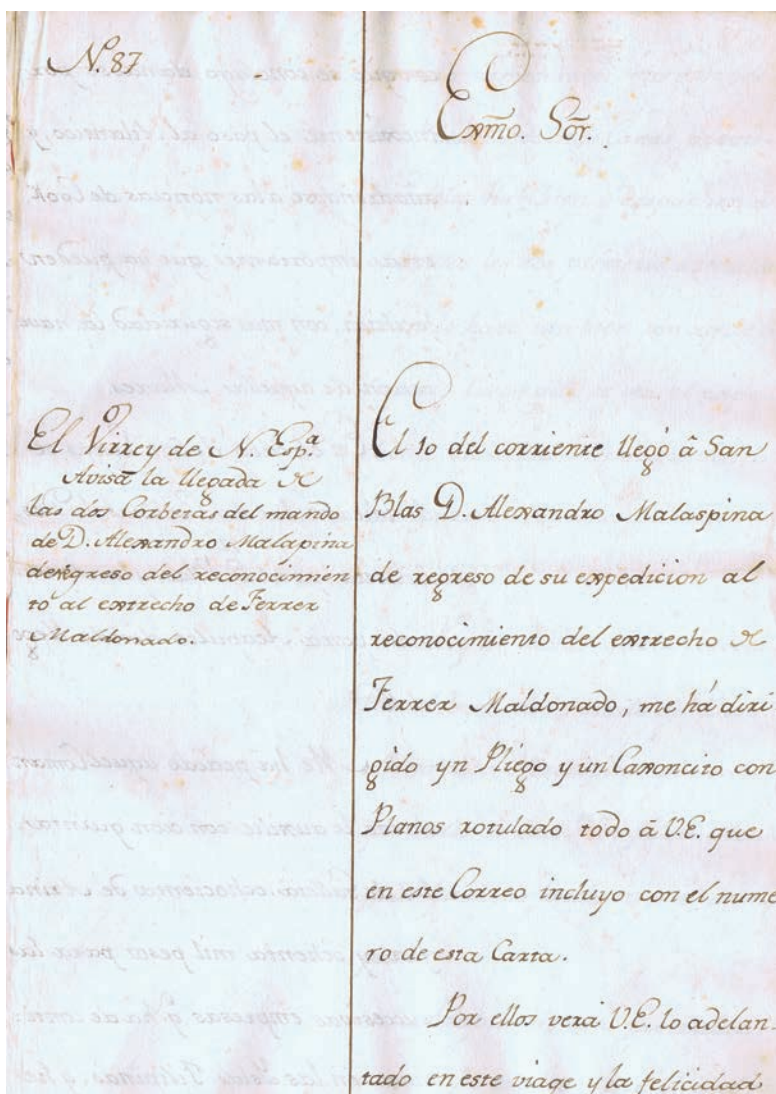 N. 87
Exmo. Sor.
El Virrey de N. Esp.ª
Avisa la llegada de
las dos Corbetas del mando
de D. Alexandro Malapina
de regreso del reconocimien
to al extrecho de Ferrer
Maldonado.
El 10 del corriente llegó â San
Blas D. Alexandro Malaspina
de regreso de su expedicion al
reconocimiento del extrecho de
Ferrer Maldonado, me há diri
gido yn Pliego y un Caxoncito con
Planos rotulado todo â V.E. que
en este Correo incluyo con el nume
ro de esta Carta.
Por ellos verá V.E. lo adelan-
tado en este viage y la felicidad